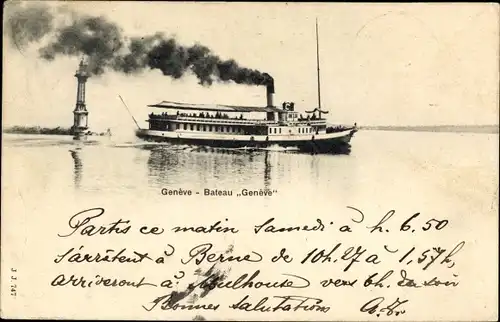 Genève - Bateau „Genève"
Partis ce matin Samedi à h. 6.50
s'arrêtent à Berne de 10h.27 à 1.57h
arriveront à Mulhouse vers 6h. du soir
Bonnes Salutations
J. J. 747